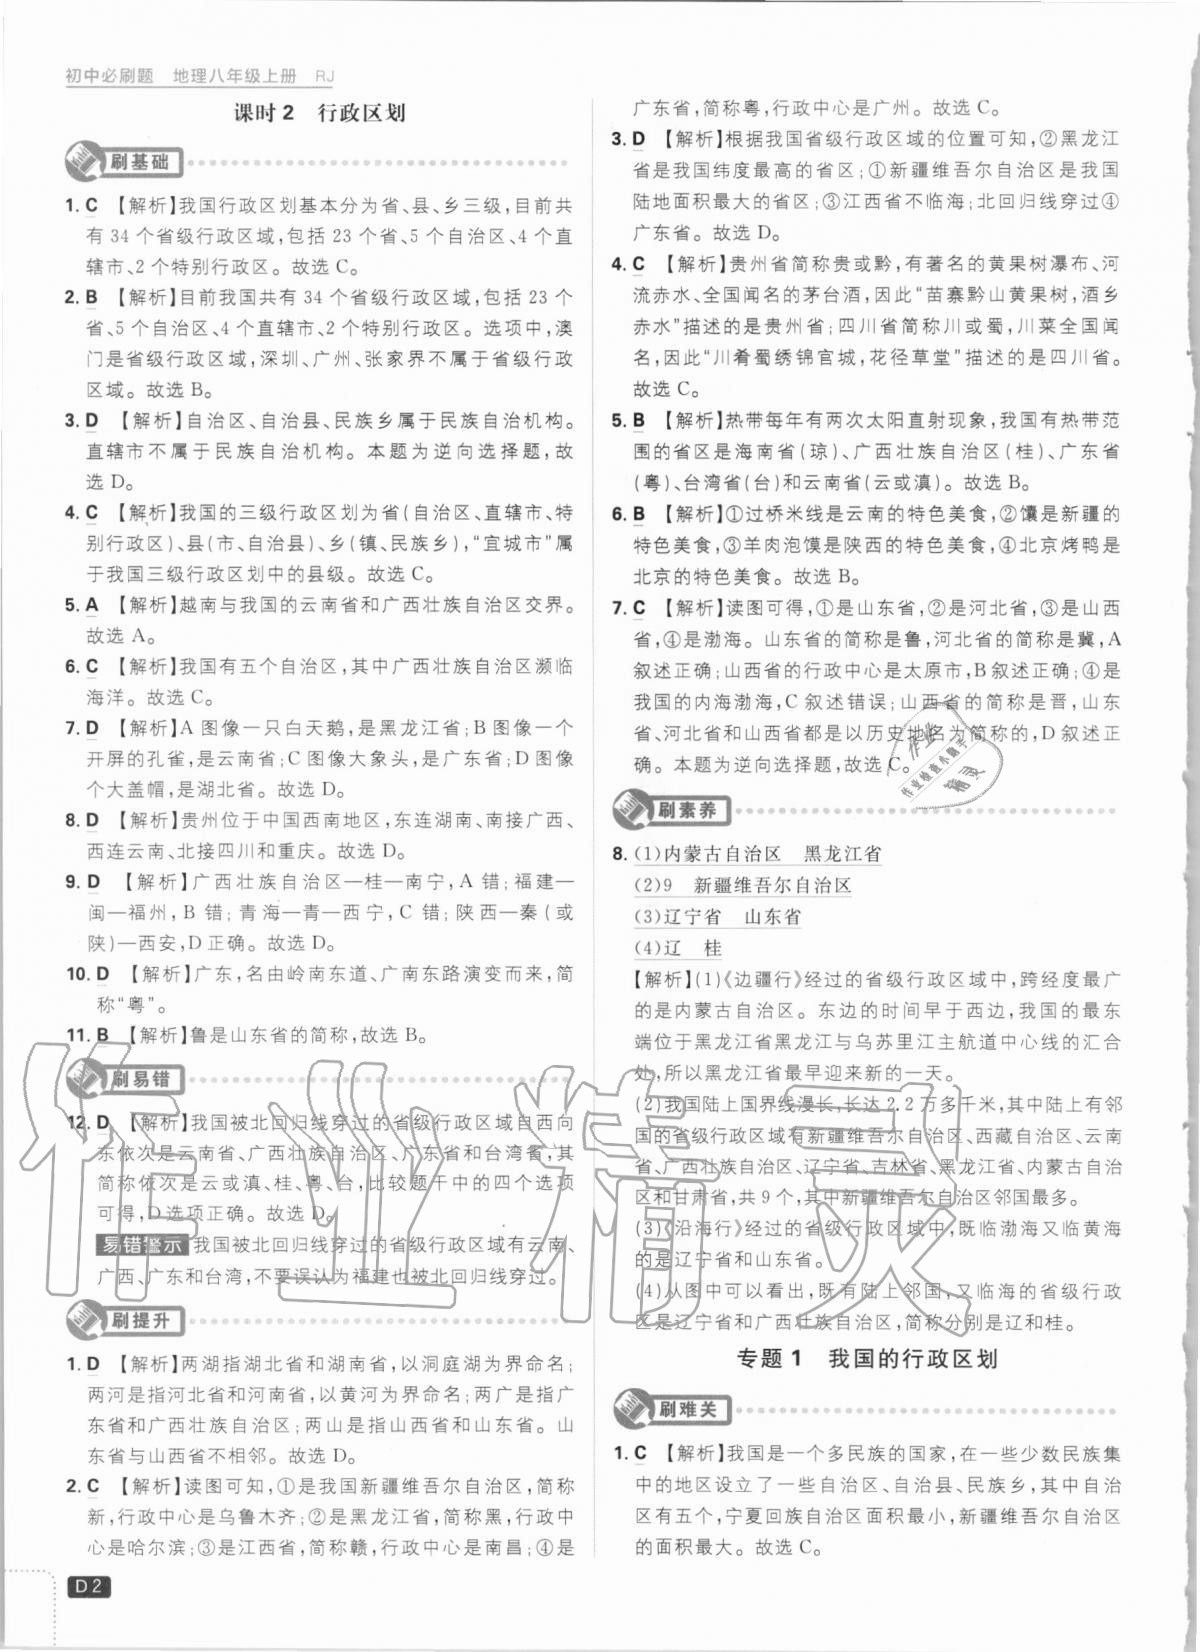 初中必刷题　地理八年级上册　RJ
课时2　行政区划
刷基础
1. C 【解析】我国行政区划基本分为省、县、乡三级,目前共
有 34 个省级行政区域,包括 23 个省、5 个自治区、4 个直
辖市、2 个特别行政区。故选 C。
2. B 【解析】目前我国共有 34 个省级行政区域,包括 23 个
省、5 个自治区、4 个直辖市、2 个特别行政区。选项中,澳
门是省级行政区域,深圳、广州、张家界不属于省级行政
区域。故选 B。
3. D 【解析】自治区、自治县、民族乡属于民族自治机构。
直辖市不属于民族自治机构。本题为逆向选择题,故
选 D。
4. C 【解析】我国的三级行政区划为省(自治区、直辖市、特
别行政区)、县(市、自治县)、乡(镇、民族乡),“宜城市”属
于我国三级行政区划中的县级。故选 C。
5. A 【解析】越南与我国的云南省和广西壮族自治区交界。
故选 A。
6. C 【解析】我国有五个自治区,其中广西壮族自治区濒临
海洋。故选 C。
7. D 【解析】A 图像一只白天鹅,是黑龙江省;B 图像一个
开屏的孔雀,是云南省;C 图像大象头,是广东省;D 图像
个大盖帽,是湖北省。故选 D。
8. D 【解析】贵州位于中国西南地区,东连湖南、南接广西、
西连云南、北接四川和重庆。故选 D。
9. D 【解析】广西壮族自治区—桂—南宁,A 错;福建—
闽—福州,B 错;青海—青—西宁,C 错;陕西—秦(或
陕)—西安,D 正确。故选 D。
10. D 【解析】广东,名由岭南东道、广南东路演变而来,简
称“粤”。
11. B 【解析】鲁是山东省的简称,故选 B。
刷易错
12. D 【解析】我国被北回归线穿过的省级行政区域自西向
东依次是云南省、广西壮族自治区、广东省和台湾省,其
简称依次是云或滇、桂、粤、台,比较题干中的四个选项
可得,D 选项正确。故选 D。
易错警示 我国被北回归线穿过的省级行政区域有云南、
广西、广东和台湾,不要误认为福建也被北回归线穿过。
刷提升
1. D 【解析】两湖指湖北省和湖南省,以洞庭湖为界命名;
两河是指河北省和河南省,以黄河为界命名;两广是指广
东省和广西壮族自治区;两山是指山西省和山东省。山
东省与山西省不相邻。故选 D。
2. C 【解析】读图可知,①是我国新疆维吾尔自治区,简称
新,行政中心是乌鲁木齐;②是黑龙江省,简称黑,行政中
心是哈尔滨;③是江西省,简称赣,行政中心是南昌;④是
D2
广东省,简称粤,行政中心是广州。故选 C。
3. D 【解析】根据我国省级行政区域的位置可知,②黑龙江
省是我国纬度最高的省区;①新疆维吾尔自治区是我国
陆地面积最大的省区;③江西省不临海;北回归线穿过④
广东省。故选 D。
4. C 【解析】贵州省简称贵或黔,有著名的黄果树瀑布、河
流赤水、全国闻名的茅台酒,因此“苗寨黔山黄果树,酒乡
赤水”描述的是贵州省;四川省简称川或蜀,川菜全国闻
名,因此“川肴蜀绣锦官城,花径草堂”描述的是四川省。
故选 C。
5. B 【解析】热带每年有两次太阳直射现象,我国有热带范
围的省区是海南省(琼)、广西壮族自治区(桂)、广东省
(粤)、台湾省(台)和云南省(云或滇)。故选 B。
6. B 【解析】①过桥米线是云南的特色美食,②馕是新疆的
特色美食,③羊肉泡馍是陕西的特色美食,④北京烤鸭是
北京的特色美食。故选 B。
7. C 【解析】读图可得,①是山东省,②是河北省,③是山西
省,④是渤海。山东省的简称是鲁,河北省的简称是冀,A
叙述正确;山西省的行政中心是太原市,B叙述正确;④是
我国的内海渤海,C 叙述错误;山西省的简称是晋,山东
省、河北省和山西省都是以历史地名为简称的,D叙述正
确。本题为逆向选择题,故选 C。
刷素养
8. (1)内蒙古自治区　黑龙江省
(2)9　新疆维吾尔自治区
(3)辽宁省　山东省
(4)辽　桂
【解析】(1)《边疆行》经过的省级行政区域中,跨经度最广
的是内蒙古自治区。东边的时间早于西边,我国的最东
端位于黑龙江省黑龙江与乌苏里江主航道中心线的汇合
处,所以黑龙江省最早迎来新的一天。
(2)我国陆上国界线漫长,长达 2.2 万多千米,其中陆上有邻
国的省级行政区域有新疆维吾尔自治区、西藏自治区、云南
省、广西壮族自治区、辽宁省、吉林省、黑龙江省、内蒙古自治
区和甘肃省,共 9 个,其中新疆维吾尔自治区邻国最多。
(3)《沿海行》经过的省级行政区域中,既临渤海又临黄海
的是辽宁省和山东省。
(4)从图中可以看出,既有陆上邻国,又临海的省级行政
区是辽宁省和广西壮族自治区,简称分别是辽和桂。
专题1　我国的行政区划
刷难关
1. C 【解析】我国是一个多民族的国家,在一些少数民族集
中的地区设立了一些自治区、自治县、民族乡,其中自治
区有五个,宁夏回族自治区面积最小,新疆维吾尔自治区
的面积最大。故选 C。
作业精灵